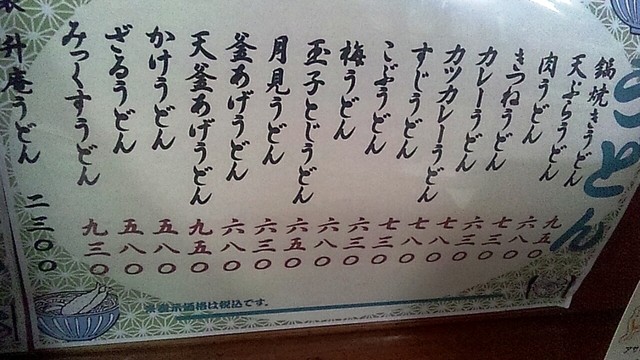 うどん
鍋焼きうどん 九五〇
天ぷらうどん 六八〇
肉うどん 七三〇
きつねうどん 六三〇
カレーうどん 七八〇
カツカレーうどん 七八〇
すじうどん 七三〇
こぶうどん 六三〇
梅うどん 六八〇
玉子とじうどん 六五〇
月見うどん 六三〇
釜あげうどん 六八〇
天釜あげうどん 九五〇
かけうどん 五八〇
ざるうどん 五八〇
みっくすうどん 九三〇
升庵うどん 二三〇〇
※表示価格は税込です。